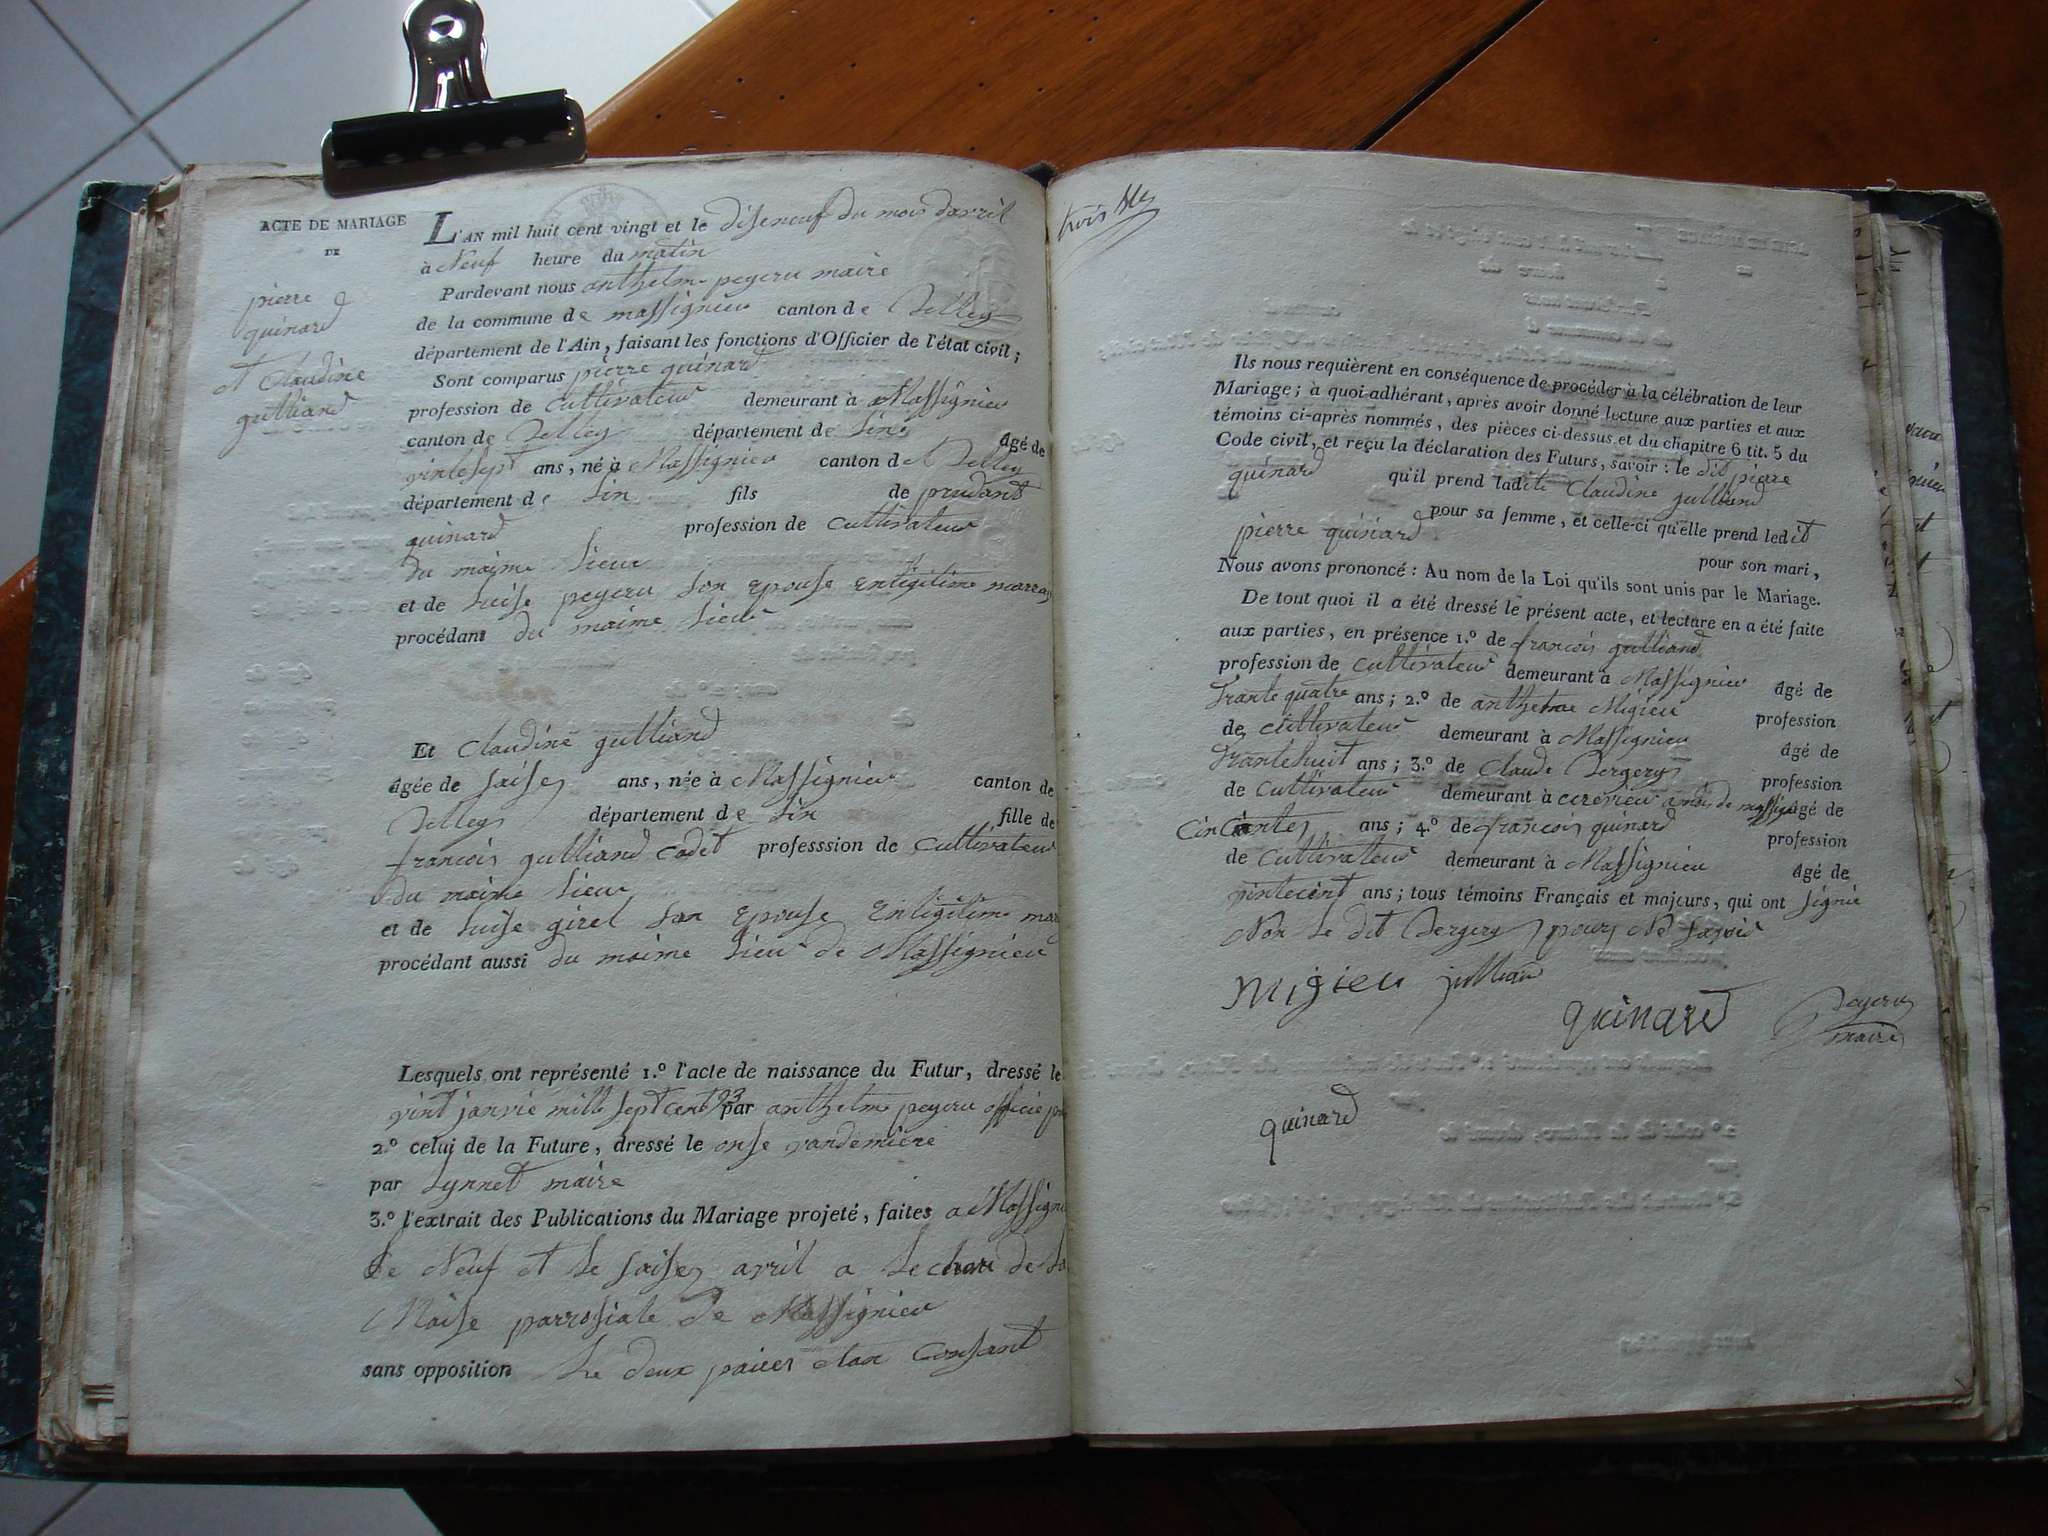 ACTE DE MARIAGE
DE
pierre
quinard
et Claudine
gulliand
L'AN mil huit cent vingt et le diseneuf du mois davril
à Neuf heure du matin
Pardevant nous anthelme peyeru maire
de la commune de massignieu canton de Belley
département de l'Ain, faisant les fonctions d'Officier de l'état civil;
Sont comparus pierre quinard
profession de cultivateur demeurant à Massignieu
canton de Belley département de Lin âgé de
vintesept ans, né à Massignieu canton de Belley
département de Lin fils de prudant
quinard profession de cultivateur
du maime lieu
et de Luise peyeru son epouse enligitime marray
procédant du maime lieu
Et Claudine gulliand
âgée de saise ans, née à Massignieu canton de
Belley département de Lin fille de
francois gulliand cadet professsion de cultivateur
du maime lieu
et de Luise girel son epouse enligitime
procédant aussi du maime lieu de Massignieu
Lesquels ont représenté 1.º l'acte de naissance du Futur, dressé le
vint janvie mille sept cent 93 par anthelme peyeru officie
2.º celui de la Future, dressé le onse vandemiere
par maire
3.º l'extrait des Publications du Mariage projeté, faites a Massignieu
le Neuf et le saise avril a de la
Maise parrosiale de Massignieu
sans opposition Le deux consant
trois
Ils nous requièrent en conséquence de procéder à la célébration de leur
Mariage; à quoi adhérant, après avoir donné lecture aux parties et aux
témoins ci-après nommés, des pièces ci-dessus et du chapitre 6 tit. 5 du
Code civil, et reçu la déclaration des Futurs, savoir: le dit pierre
quinard qu'il prend ladite Claudine gulliand
pour sa femme, et celle-ci qu'elle prend ledit
pierre quinard pour son mari,
Nous avons prononcé: Au nom de la Loi qu'ils sont unis par le Mariage.
De tout quoi il a été dressé le présent acte, et lecture en a été faite
aux parties, en présence 1.º de francois gulliand
profession de cultivateur demeurant à Massignieu âgé de
trante quatre ans; 2.º de anthelme Migieu profession
de cultivateur demeurant à Massignieu âgé de
trantehuit ans; 3.º de Claude Bergery profession
de cultivateur demeurant à âgé de
ans; 4.º de francois quinard profession
de cultivateur demeurant à Massignieu âgé de
vintecint ans; tous témoins Français et majeurs, qui ont signié
Non le dit Bergery pour Ne savoir
migieu jullian
quinard
peyeru
maire
quinard